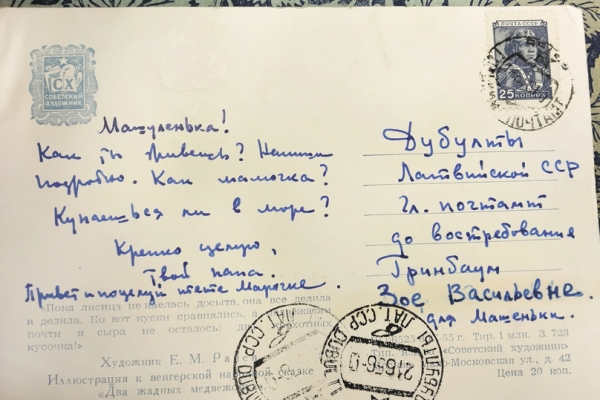 ПОЧТА СССР
25 КОПЕЕК
ПОЧТАМТ
СХ
СОВЕТСКИЙ
ХУДОЖНИК
Машуленька!
Как ты живешь? Напиши
подробно. Как мамочка?
Купаешься ли в море?
Крепко целую,
твой папа.
Привет и поцелуй тете Марочке.
Дубулты
Латвийской ССР
Гл. почтамт
до востребования
Гринбаум
Зое Васильевне.
для Машеньки.
Пока лисица не наелась досыта, она все делила
и делила. Но вот куски сравнялись, а
почти и сыра не осталось: два крохотных
кусочка!»
Художник Е. М. Ра
Иллюстрация к венгерской народной сказке
«Два жадных медвежонка»
55 г. Тир. 1 млн. З. 723
«Советский художник»
Московская ул., д. 42
Цена 20 коп.
ЛАТ. ССР DUBUL
ДУБУЛТЫ ЛАТ. ССР
21656